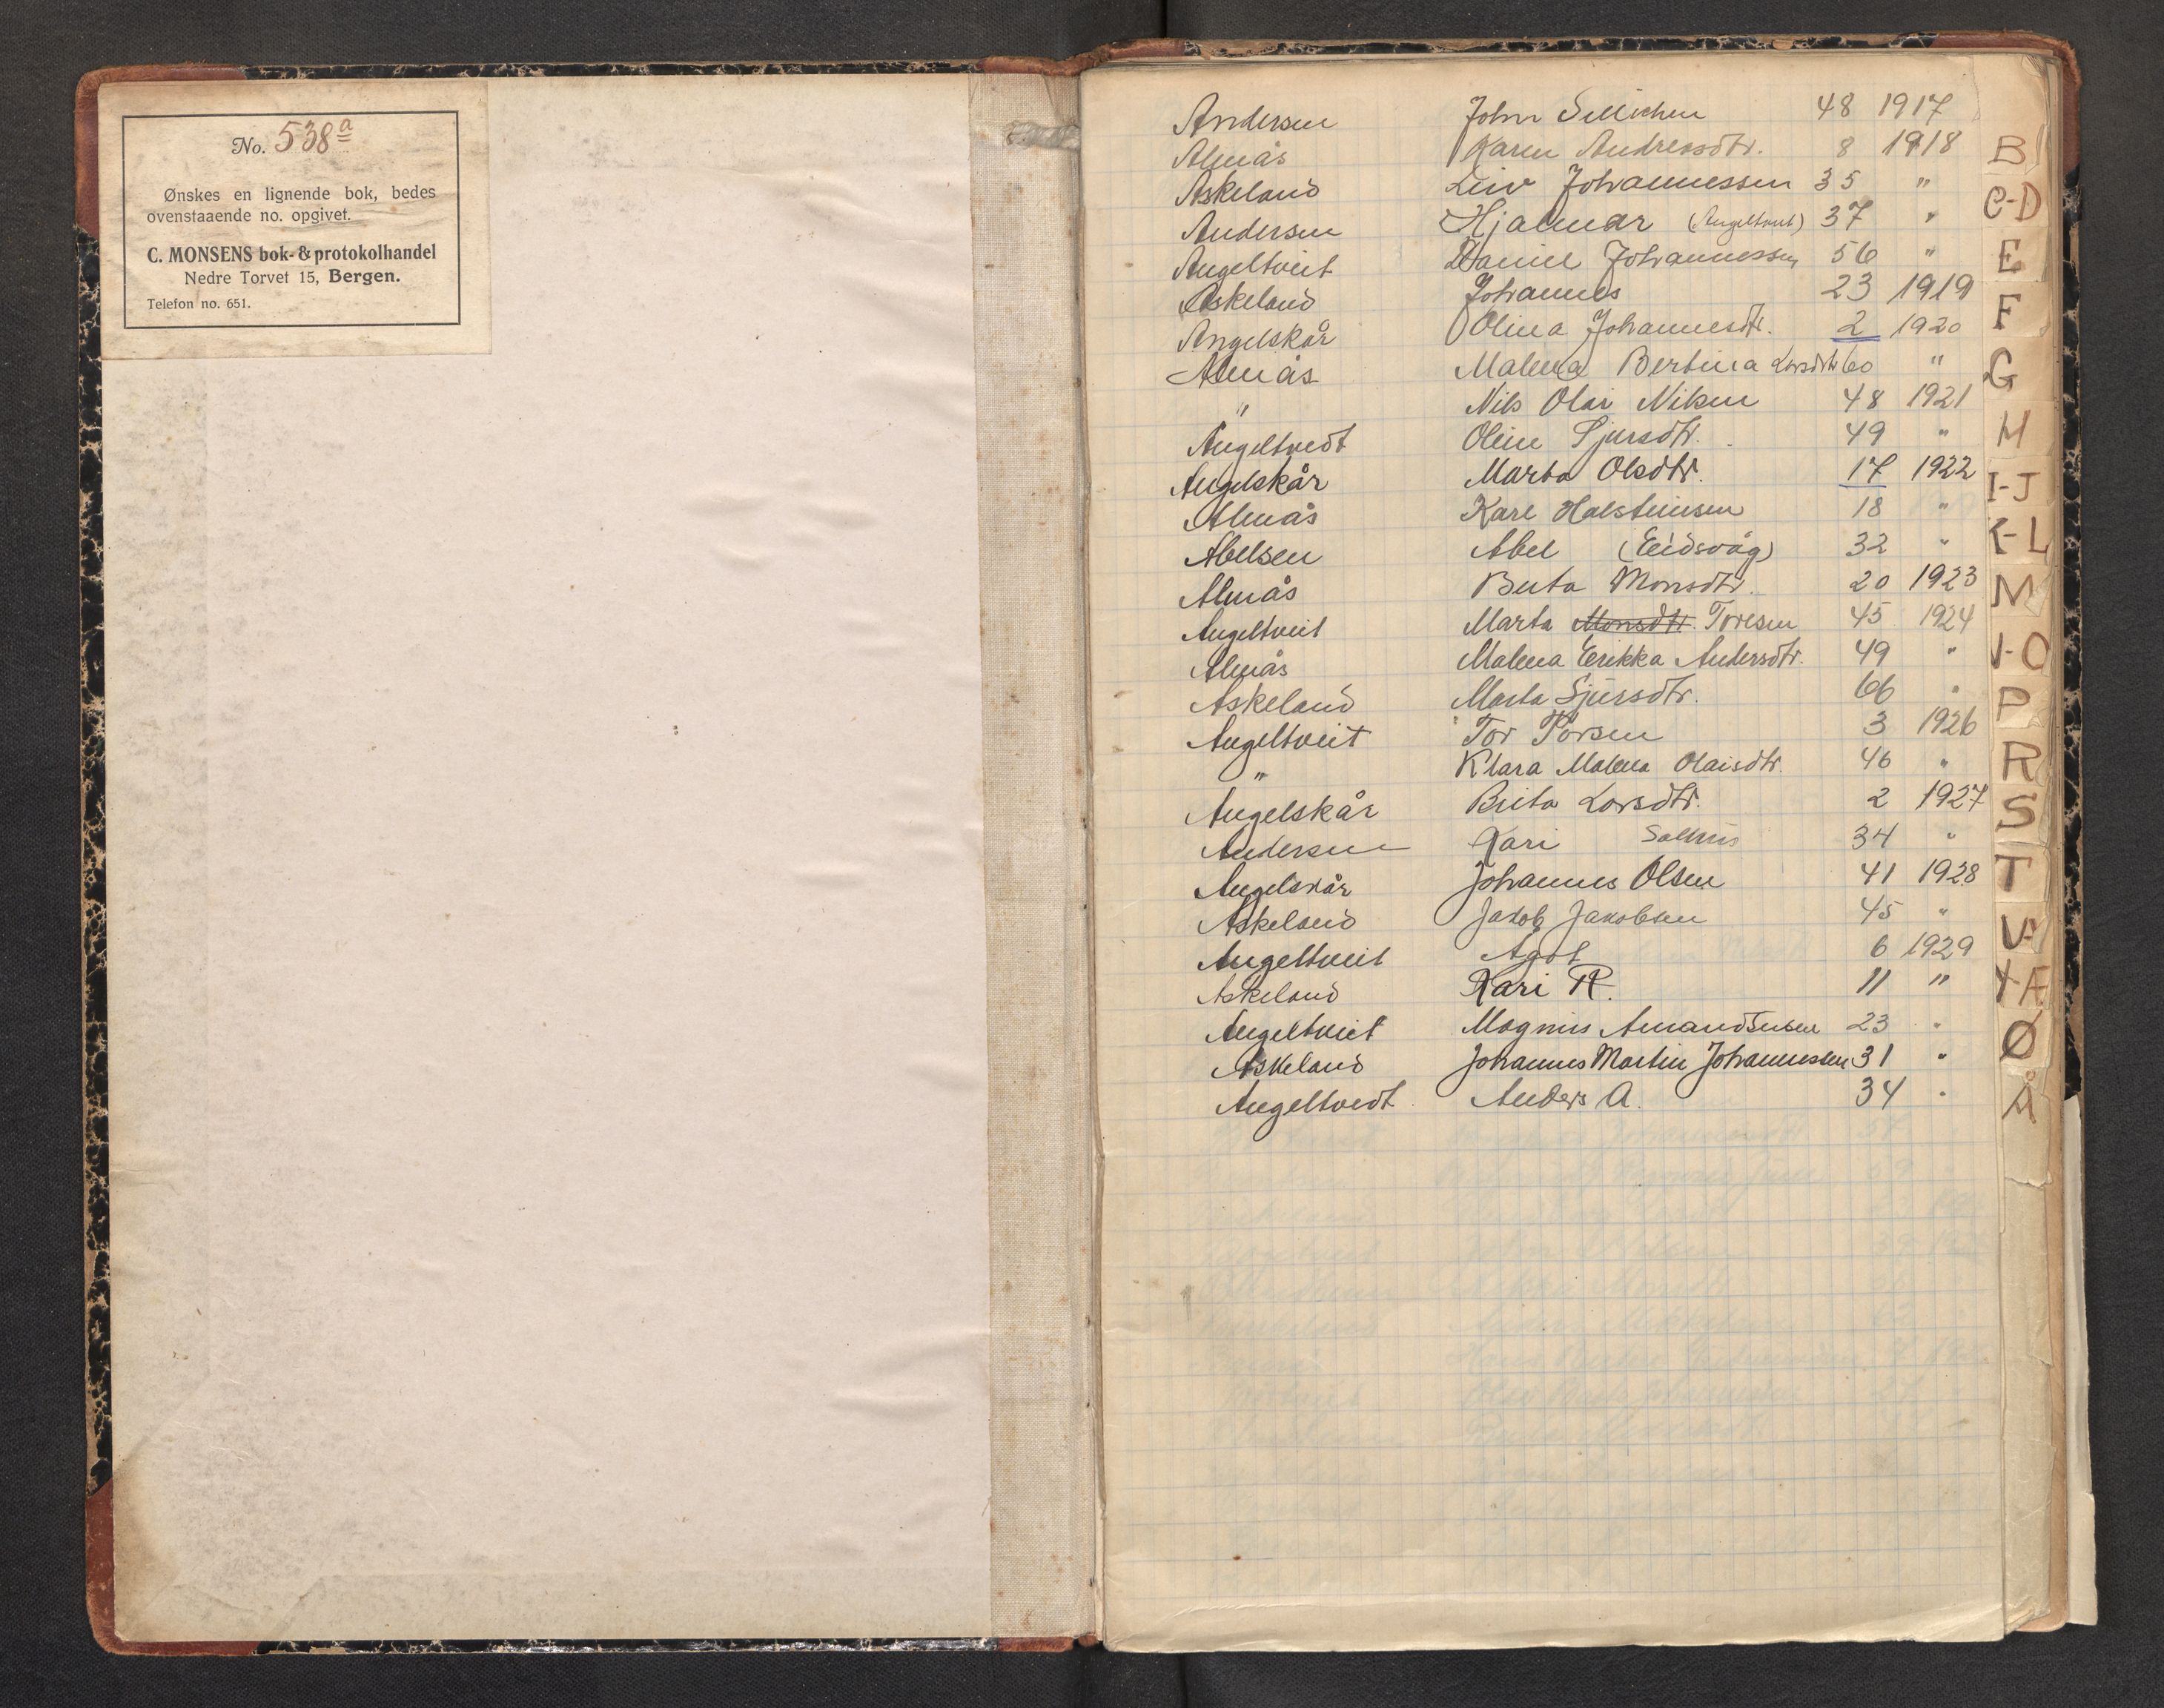 No. 538a
Ønskes en lignende bok, bedes
ovenstaaende no. opgivet.
C. MONSENS bok- & protokolhandel
Nedre Torvet 15, Bergen.
Telefon no. 651.
Andersen John 48 1917
Almås Karen Andreasdtr. 8 1918
Askeland Leiv Johannessen 35 "
Andersen Hjalmar (Angeltveit) 37 "
Angeltveit Daniel Johannessen 56 "
Askeland Johannes 23 1919
Angelskår Olina Johannesdtr. 2 1920
Almås Malena Bertina Larsdtr 60 "
" Nils Olai Nilsen 48 1921
Angeltvedt Oline Sjursdtr. 49 "
Angelskår Marta Olsdtr. 17 1922
Almås Karl Halsteinsen 18 "
Abelsen Abel (Eidsvåg) 32 "
Almås Berta Monsdtr. 20 1923
Angeltveit Marta Monsdtr. Toresen 45 1924
Almås Malena Erikka Andersdtr. 49 "
Askeland Marta Sjursdtr. 66 "
Angeltveit Tor Torsen 3 1926
" Klara Malena Olaisdtr. 46 "
Angelskår Brita Larsdtr. 2 1927
Andersen Kari Salhus 34 "
Angelskår Johannes Olsen 41 1928
Askeland Jakob Jakobsen 45 "
Angeltveit Agot 6 1929
Askeland Kari R. 11 "
Angeltveit Magnus Amandsensen 23 "
Askeland Johannes Martin Johannessen 31 "
Angeltvedt Anders A. 34 "
B
C-D
E
F
G
H
I-J
K-L
M
N-O
P
R
S
T
U-V
Y-Æ
Ø
Å